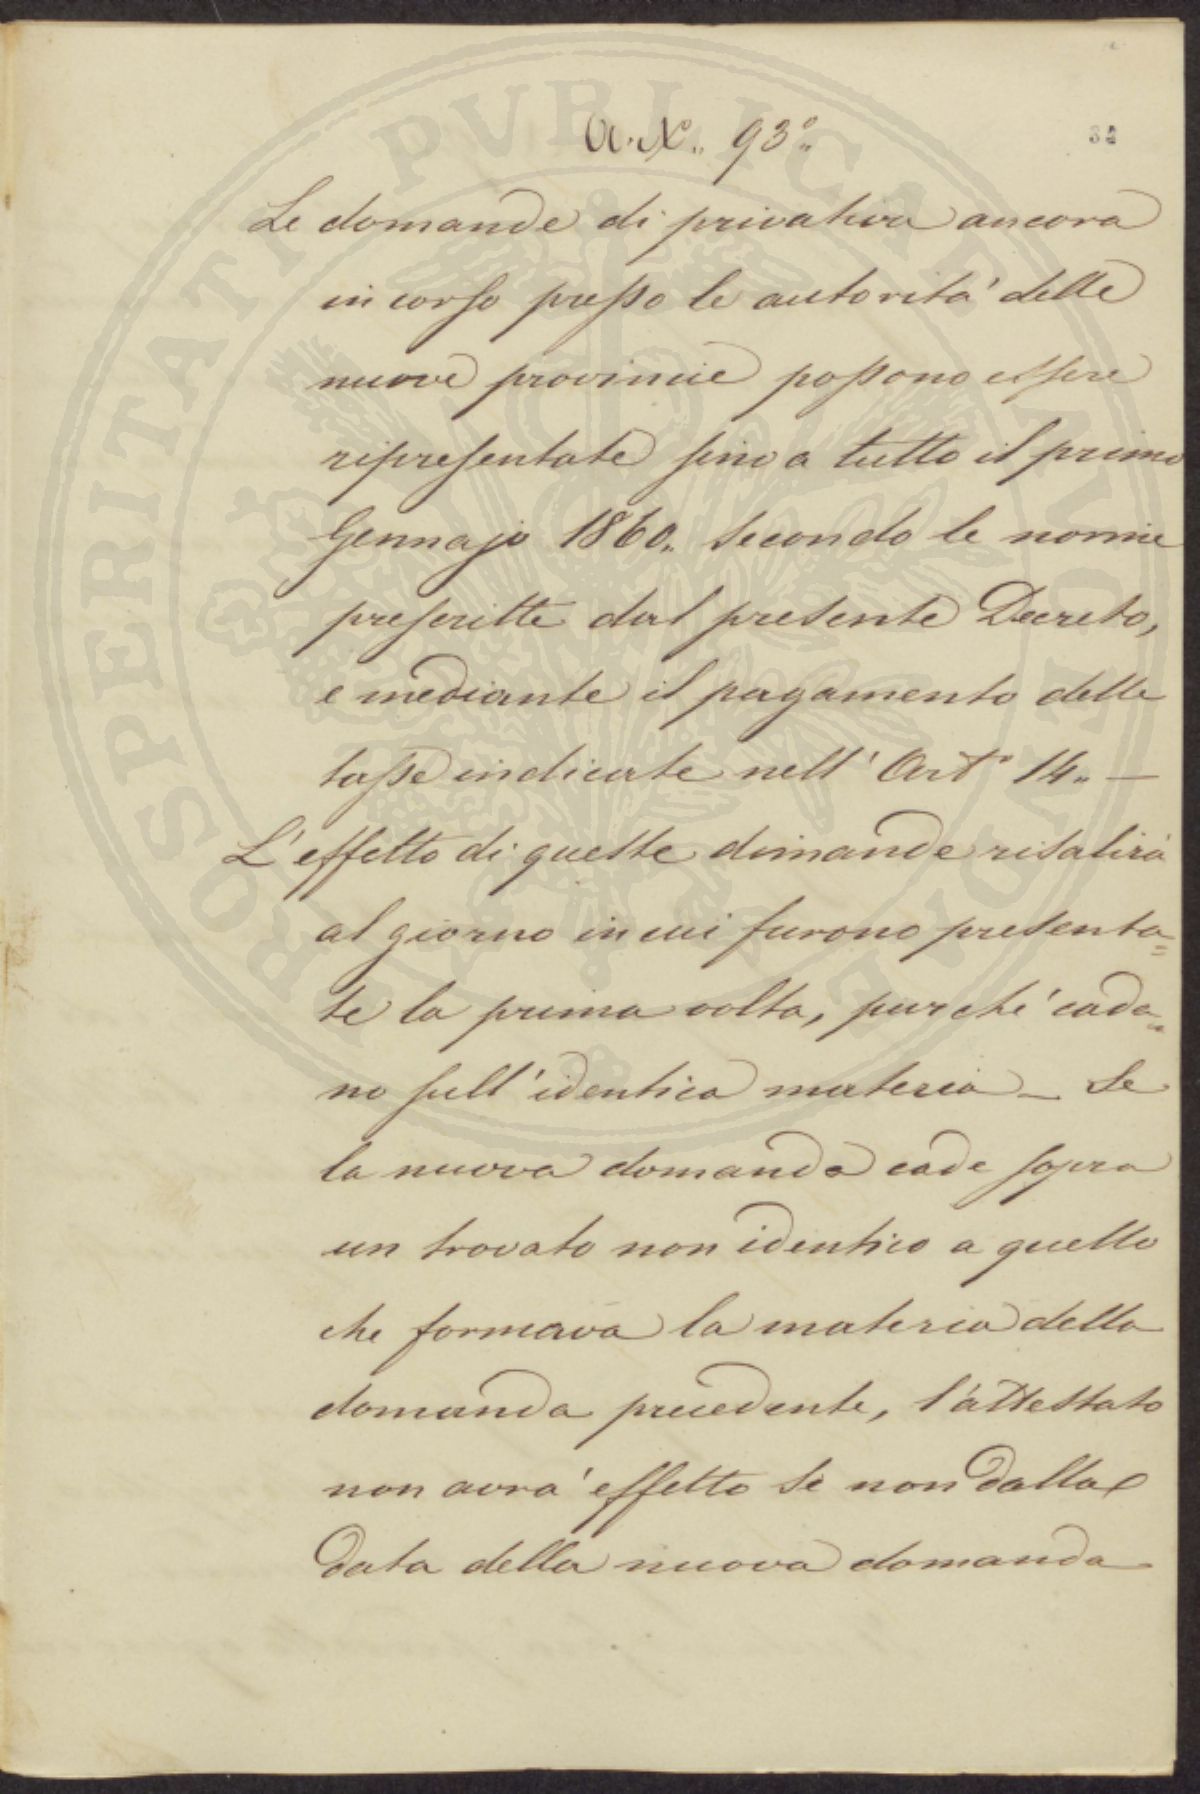 A. N.. 93°..
32
Le domande di privativa ancora
in corso presso le autorità delle
nuove provincie possono essere
ripresentate sino a tutto il primo
Gennajo 1860.. secondo le norme
prescritte dal presente Decreto,
e mediante il pagamento delle
tasse indicate nell' Art° 14.. —
L'effetto di queste dimande risalirà
al giorno in cui furono presenta=
te la prima volta, purchè cada=
no sull'identica materia — Se
la nuova domanda cade sopra
un trovato non identico a quello
che formava la materia della
domanda precedente, l'attestato
non avrà effetto se non dalla
data della nuova domanda
PROSPERITATI PVBLICAE AVGENDAE